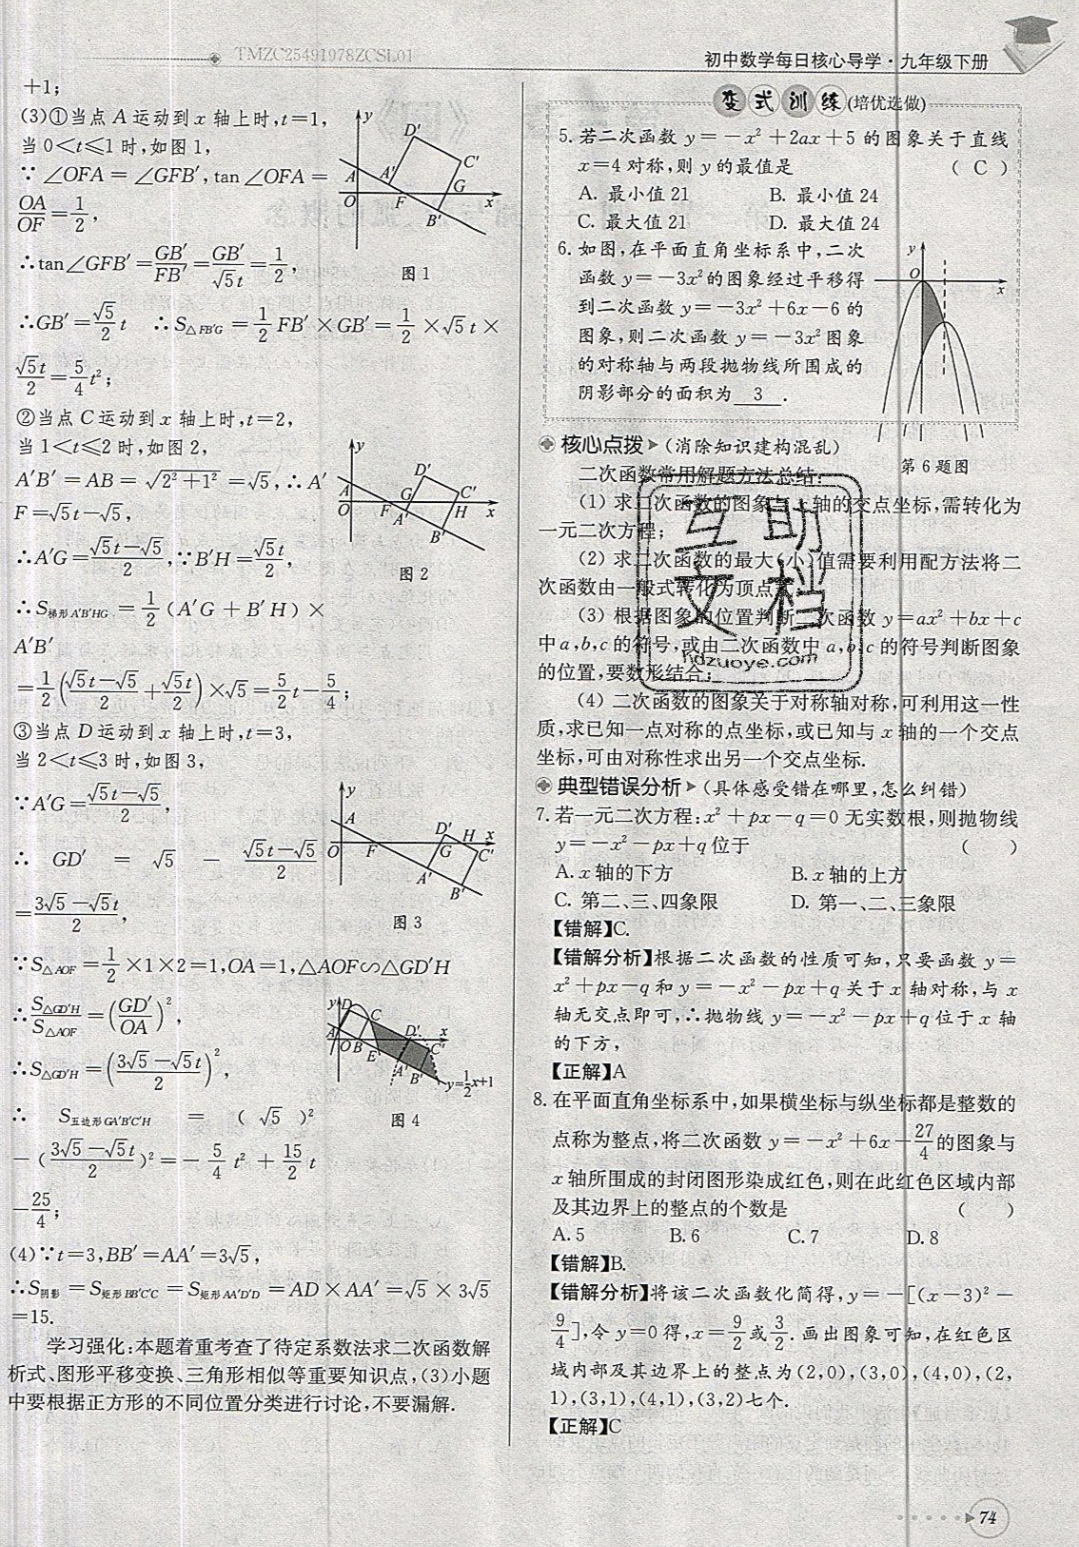 TMZC25491978ZCSL01
初中数学每日核心导学·九年级下册
+1;
(3)①当点 A 运动到 x 轴上时,t=1,
当 0<t≤1 时,如图 1,
∵ ∠OFA = ∠GFB′, tan ∠OFA =
OA/OF = 1/2,
∴tan∠GFB′= GB′/FB′ = GB′/√5t = 1/2,
∴GB′= √5/2 t ∴S△FB′G = 1/2 FB′×GB′= 1/2 ×√5t×
√5t/2 = 5/4 t²;
②当点 C 运动到 x 轴上时,t=2,
当 1<t≤2 时,如图 2,
A′B′ = AB = √(2²+1²) =√5,∴A′
F=√5t−√5,
∴A′G= (√5t−√5)/2 ,∵B′H= √5t/2 ,
∴S梯形A′B′HG = 1/2 (A′G + B′H) ×
A′B′
= 1/2 ( (√5t−√5)/2 + √5t/2 )×√5= 5/2 t− 5/4 ;
③当点 D 运动到 x 轴上时,t=3,
当 2<t≤3 时,如图 3,
∵A′G= (√5t−√5)/2 ,
∴ GD′ = √5 − (√5t−√5)/2
= (3√5−√5t)/2 ,
∵S△AOF = 1/2 ×1×2=1,OA=1,△AOF∽△GD′H
∴ S△GD′H/S△AOF = ( GD′/OA )²,
∴S△GD′H = ( (3√5−√5t)/2 )²,
∴ S五边形GA′B′C′H = ( √5 )²
−( (3√5−√5t)/2 )²=− 5/4 t² + 15/2 t
− 25/4 ;
(4)∵t=3,BB′=AA′=3√5,
∴S阴影 =S矩形BB′C′C =S矩形AA′D′D =AD×AA′=√5×3√5
=15.
学习强化:本题着重考查了待定系数法求二次函数解
析式、图形平移变换、三角形相似等重要知识点,(3)小题
中要根据正方形的不同位置分类进行讨论,不要漏解.
y D′ C′ A A′ G O F x B′
图 1
y D′ C′ A G O F A′ H x B′
图 2
y A D′ H x O F G C′ A′ B′
图 3
y D C A O B E D′ x C′ A′ B′ y=1/2x+1
图 4
变式训练(培优选做)
5. 若二次函数 y=−x²+2ax+5 的图象关于直线
x=4 对称,则 y 的最值是 ( C )
A. 最小值 21 B. 最小值 24
C. 最大值 21 D. 最大值 24
6. 如图,在平面直角坐标系中,二次
函数 y=−3x²的图象经过平移得
到二次函数 y=−3x²+6x−6 的
图象,则二次函数 y=−3x²图象
的对称轴与两段抛物线所围成的
阴影部分的面积为 3 .
y O x
第 6 题图
核心点拨(消除知识建构混乱)
二次函数常用解题方法总结:
(1) 求二次函数的图象与 x 轴的交点坐标,需转化为
一元二次方程;
(2) 求二次函数的最大(小)值需要利用配方法将二
次函数由一般式转化为顶点式;
(3) 根据图象的位置判断二次函数 y=ax²+bx+c
中 a,b,c 的符号,或由二次函数中 a,b,c 的符号判断图象
的位置,要数形结合;
(4) 二次函数的图象关于对称轴对称,可利用这一性
质,求已知一点对称的点坐标,或已知与 x 轴的一个交点
坐标,可由对称性求出另一个交点坐标.
互助
文档
hdzuoye.com
典型错误分析(具体感受错在哪里,怎么纠错)
7. 若一元二次方程:x²+px−q=0 无实数根,则抛物线
y=−x²−px+q位于 ( )
A. x 轴的下方 B. x 轴的上方
C. 第二、三、四象限 D. 第一、二、三象限
【错解】C.
【错解分析】根据二次函数的性质可知,只要函数 y=
x²+px−q 和 y=−x²−px+q 关于 x 轴对称,与 x
轴无交点即可,∴抛物线 y=−x²−px+q 位于 x 轴
的下方,
【正解】A
8. 在平面直角坐标系中,如果横坐标与纵坐标都是整数的
点称为整点,将二次函数 y=−x²+6x− 27/4 的图象与
x 轴所围成的封闭图形染成红色,则在此红色区域内部
及其边界上的整点的个数是 ( )
A. 5 B. 6 C. 7 D. 8
【错解】B.
【错解分析】将该二次函数化简得,y=−[(x−3)²−
9/4 ],令 y=0 得,x= 9/2 或 3/2 . 画出图象可知,在红色区
域内部及其边界上的整点为(2,0),(3,0),(4,0),(2,
1),(3,1),(4,1),(3,2)七个.
【正解】C
74